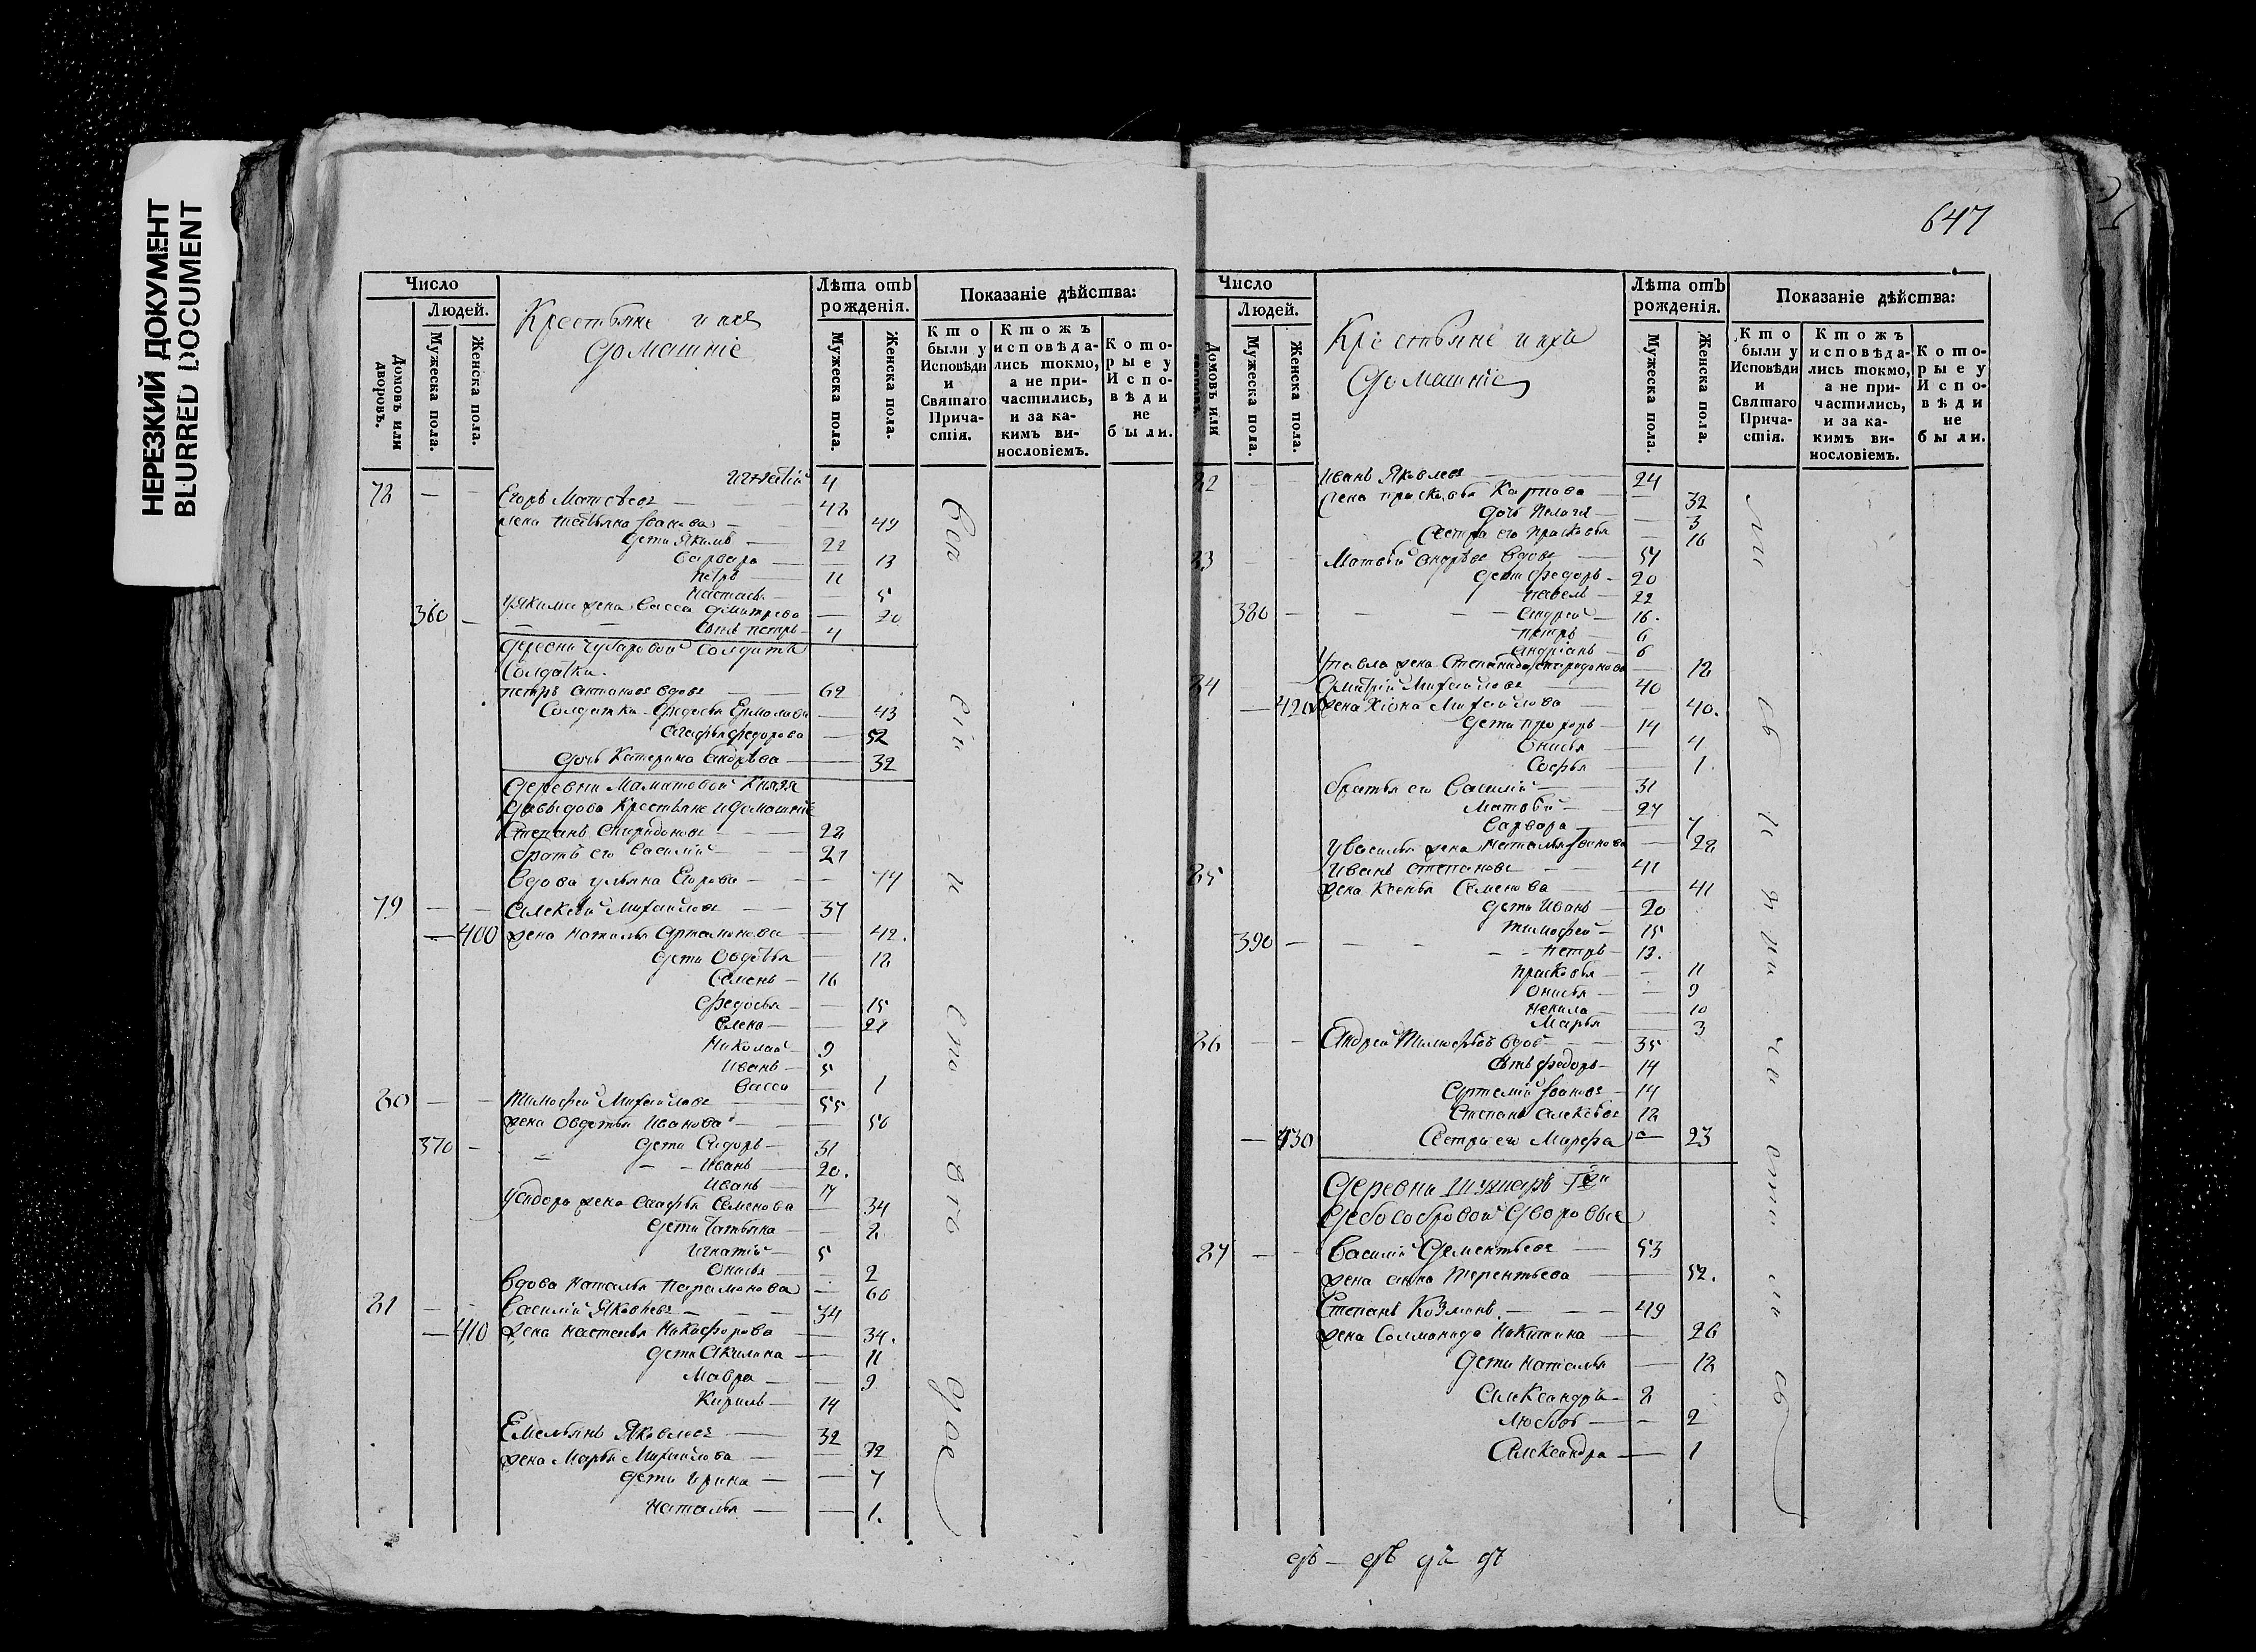 НЕРЕЗКИЙ ДОКУМЕНТ
BLURRED DOCUMENT
Число
Людей.
Домовъ или дворовъ.
Мужеска пола.
Женска пола.
Крестьяне и ихъ
домашніе
Лѣта отъ рожденія.
Мужеска пола.
Женска пола.
Показаніе дѣйства:
Кто были у Исповѣди и Святаго Причастія.
Ктожъ исповѣдались токмо, а не причастились, и за какимъ винословіемъ.
Которые у Исповѣди не были.
Игнатій 4
78 — — Егоръ Матвѣевъ — 48
жена Татьяна Іванова — 49
дети Якимъ — 22
Варвара — 13
Петръ — 11
Настасья — 5
360 — У Якима жена Васса Дмитрева — 20
Сынъ Петръ — 4
деревни Чубаровой Солдатъ
Солдатки.
Петръ Антоновъ вдовъ — 62
Солдатка Федосья Ермолаева — 43
Агафья Федорова — 52
дочь Катерина Андрѣева — 32
деревни Маматовой Князя
Давыдова Крестьяне и домашніе
Степанъ Спиридоновъ — 28
братъ его Василій — 21
Вдова Ульяна Егорова — 74
79 — — Алексѣй Михайловъ — 37
— 400 жена Наталья Артамонова — 42.
дети Овдотья — 18
Семенъ — 16
Федосья — 15
Елена — 21
Николай — 9
Иванъ — 5
Васса — 1
80 — — Тимофей Михайловъ — 55
жена Овдотья Иванова — 50
370 — дети Сидоръ — 31
Иванъ — 20.
Иванъ — 17
У Сидора жена Агафья Семенова — 34
дети Татьяна — 8
Игнатій — 5
Онисья — 2
Вдова Наталья Парамонова — 60
81 — — Василій Яковлевъ — 34
— 410 жена Настасья Никифорова — 34.
дети Акилина — 11
Мавра — 9
Кирилъ — 14
Емельянъ Яковлевъ — 32
жена Марья Михайлова — 32
дети Ирина — 7
Наталья — 1.
647
Число
Людей.
Домовъ или
Мужеска пола.
Женска пола.
Крестьяне и ихъ
домашніе
Лѣта отъ рожденія.
Мужеска пола.
Женска пола.
Показаніе дѣйства:
Кто были у Исповѣди и Святаго Причастія.
Ктожъ исповѣдались токмо, а не причастились, и за какимъ винословіемъ.
Которые у Исповѣди не были.
82 — — Иванъ Яковлевъ — 24
жена Прасковья Карпова — 32
дочь Пелагея — 3
Сестра его Прасковья — 16
83 — — Матвѣй Андрѣевъ вдовъ — 57
дети Федоръ — 20
Павелъ — 22
380 — Андрей — 16.
Петръ — 6
Андріанъ — 6
У Павла жена Степанида Спиридонова — 18
84 — — Дмитрій Михайловъ — 40
— 420 жена Хіона Михайлова — 40.
дети Прохоръ — 14
Онисья — 4
Софья — 1.
братья его Василій — 31
Матвѣй — 27
Варвара — 7
У Василья жена Наталья Іванова — 28
85 Иванъ Степановъ — 41
жена Ксенья Семенова — 41
дети Иванъ — 20
Тимофей — 15
390 — Петръ — 13.
Прасковья — 11
Онисья — 9
Ненила — 10
Марья — 3
86 — — Андрей Тимофѣевъ вдов — 35
Сынъ Федоръ — 14
Артемій Івановъ — 14
Степанъ Алексѣевъ 18
— 430 Сестра его Марфа — 23
Деревни
дворовые
87 — — Василій Дементьевъ — 53
жена Анна Терентьева — 52.
Степанъ Козминъ — 49
жена Соломонида Никитина — 26
дети Наталья — 18
Александръ — 8
Любовь — 2
Александра — 1